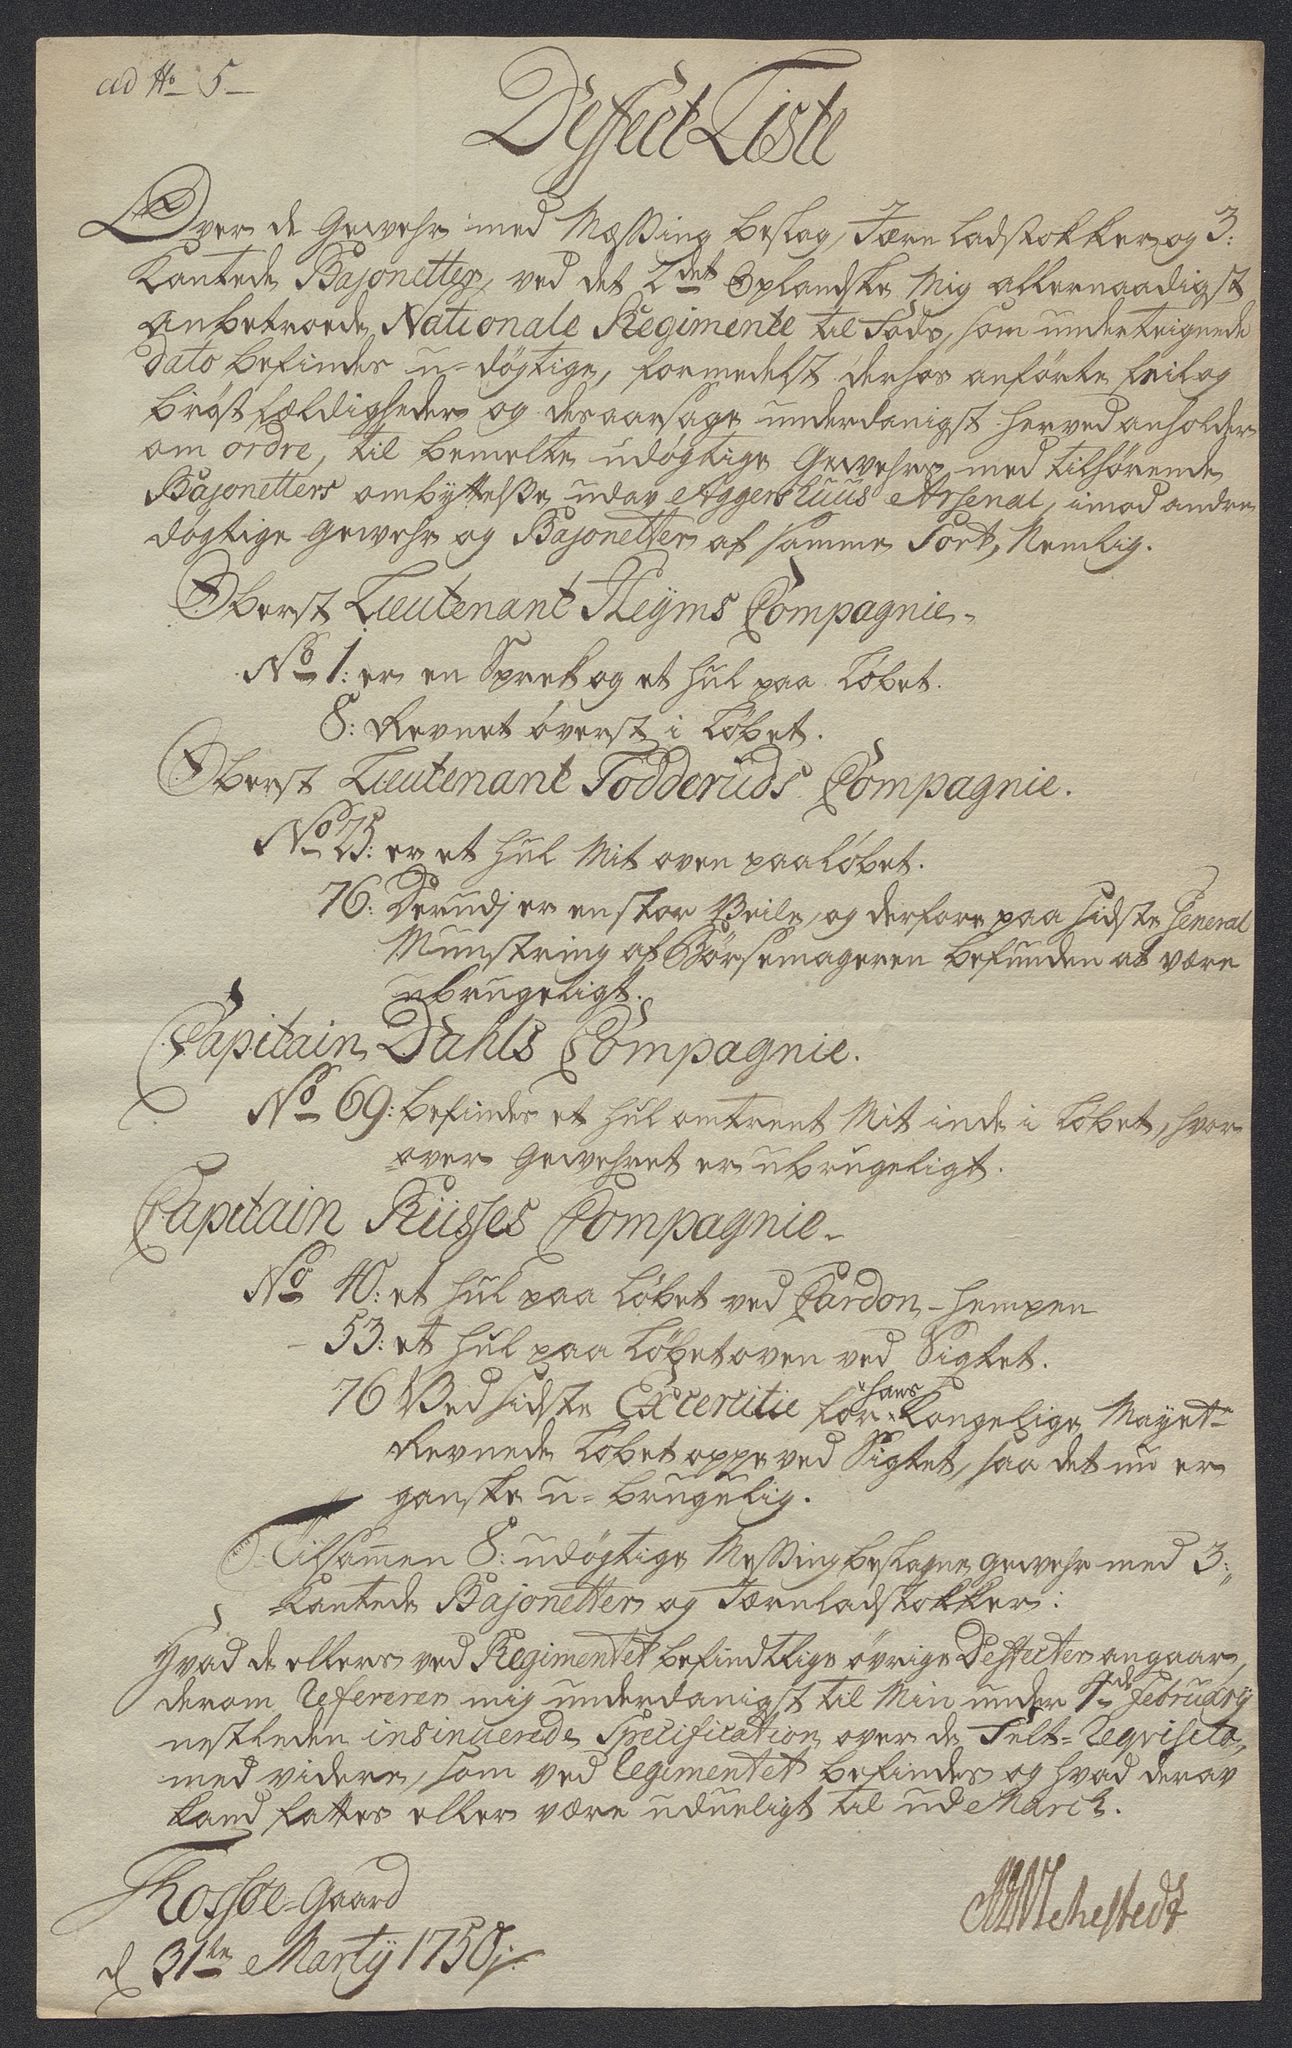 ad No 5
Deffect Liste
Over de Gewehr med Mæssing beslag, Jærn Ladstokker og 3:
kantede Bajonetter, ved det 2det Oplandske Mig allernaadigst
anbetroede Nationale Regimente til Fods, som undertegnede
dato befindes u-døgtige, formedelst derhos anførte feil og
brøstfældigheder og desaarsage underdanigst herved anholder
om ordre, til bemelte udøgtige Gewehrs med tilhørende
Bajonetters ombyttelse udav Aggershuus Arsenal, imod andre
døgtige Gewehr og Bajonetter af samme Sort, Nemlig.
Oberst Lieutenant Heyms Compagnie.
No 1: er en Spræk og et hul paa Løbet.
8: Revnet øverst i Løbet.
Oberst Lieutenant Todderuds Compagnie.
No 25: er et hul Mit oven paa Løbet.
76: Derudj er en stor Beile, og derfore paa sidste General
Munstring af Børsemageren befunden at være
ubrugeligt.
Capitain Dahls Compagnie.
No 69: befindes et hul omtrent Mit inde i Løbet, hvor
over Gewehret er ubrugeligt.
Capitain Küsses Compagnie.
No 40: et hul paa Løbet ved Cardon-hempen
- 53: et hul paa Løbet oven ved Sigtet.
76 Ved sidste Excercitie for hans Kongelige Mayet
Revnede Løbet oppe ved Sigtet, saa det nu er
ganske u-brugelig.
Tilsamen 8: udøgtige Messingbeslagne Gewehr med 3:
kantede Bajonetter og Jærnladstokker:
Hvad de ellers ved Regimentet befindtlige øvrige Deffecter angaar,
derom Referer mig underdanigst til Min under 7de February
nestleden insinuerede Specification over de Felt-Reqvisita,
med videre, som ved Regimentet befindes og hvad derav
kand fattes eller være udueligt til ud March.
Thossøe-Gaard
d 31te Martij 1750
Sehestedt